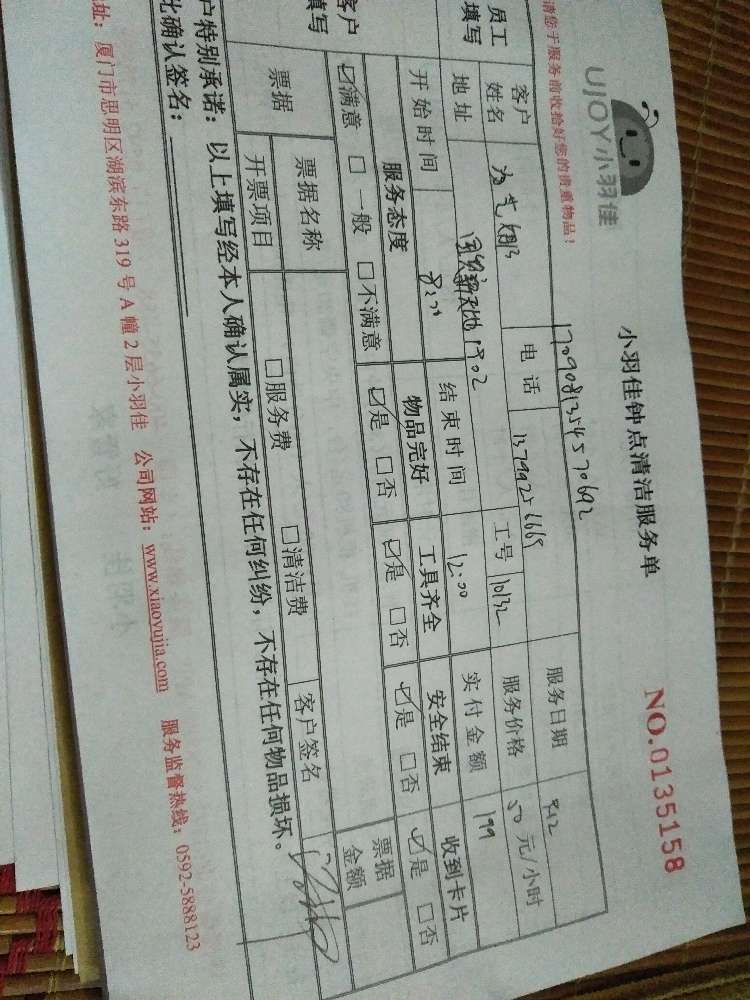 UJOY小羽佳
小羽佳钟点清洁服务单
NO.0135158
请您于服务前收拾好您的贵重物品！
1709081354570692
员工
填写
客户
姓名
电话
工号
10132
服务日期
9.12
地址
国贸新天地1902
服务价格
50 元/小时
开始时间
8:00
结束时间
12:00
实付金额
199
客户
填写
服务态度
物品完好
工具齐全
安全结束
收到卡片
☑满意 □一般 □不满意
☑是 □否
☑是 □否
☑是 □否
☑是 □否
票据
票据名称
票据
金额
开票项目
□服务费
□清洁费
客户签名
户特别承诺：以上填写经本人确认属实，不存在任何纠纷，不存在任何物品损坏。
此确认签名：
址：厦门市思明区湖滨东路319号A幢2层小羽佳 公司网站：www.xiaoyujia.com 服务监督热线：0592-5888123